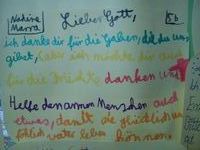 Nadine
Marra
Lieber Gott,
5b
ich danke dir für die Gaben, die du uns
gibst, aber ich möchte dir auch
für die danken und
Helfe den armen Menschen auch
etwas, damit sie glücklich und
fröhlich weiter leben können.